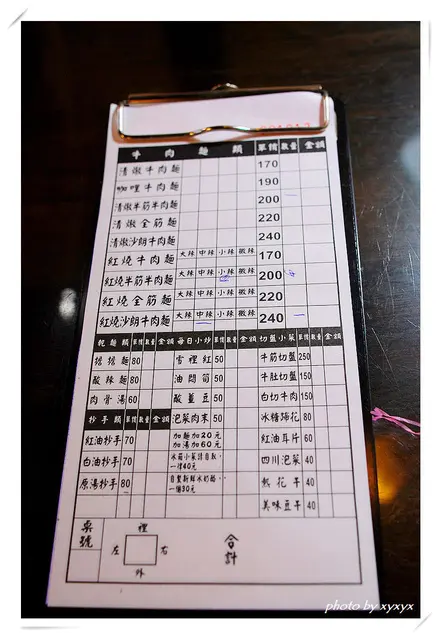 牛肉麵類 單價 數量 金額
清燉牛肉麵 170
咖哩牛肉麵 190
清燉半筋半肉麵 200
清燉全筋麵 220
清燉沙朗牛肉麵 240
紅燒牛肉麵 大辣 中辣 小辣 微辣 170
紅燒半筋半肉麵 大辣 中辣 小辣 微辣 200
紅燒全筋麵 大辣 中辣 小辣 微辣 220
紅燒沙朗牛肉麵 大辣 中辣 小辣 微辣 240
乾麵類 單價 數量 金額 每日小炒 單價 數量 金額 切盤小菜 單價 數量 金額
擔擔麵 80 雪裡紅 50 牛筋切盤 250
酸辣麵 80 油燜筍 50 牛肚切盤 150
肉骨湯 60 酸薑豆 50 白切牛肉 150
抄手類 單價 數量 金額 泡菜肉末 50 冰糖蹄花 80
紅油抄手 70 加麵加20元 紅油耳片 60
加湯加60元
白油抄手 70 冰箱小菜請自取, 四川泡菜 40
一律40元
原湯抄手 80 自製新鮮水奶酪, 熟花干 40
一個30元
美味豆干 40
桌號 裡 合計
左 右
外
photo by xyxyx